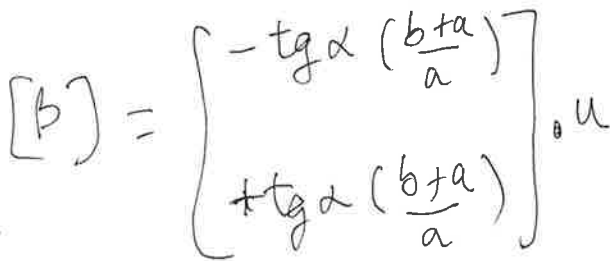 [β] = [ -tg α (b+a / a)
+tg α (b+a / a) ] . u